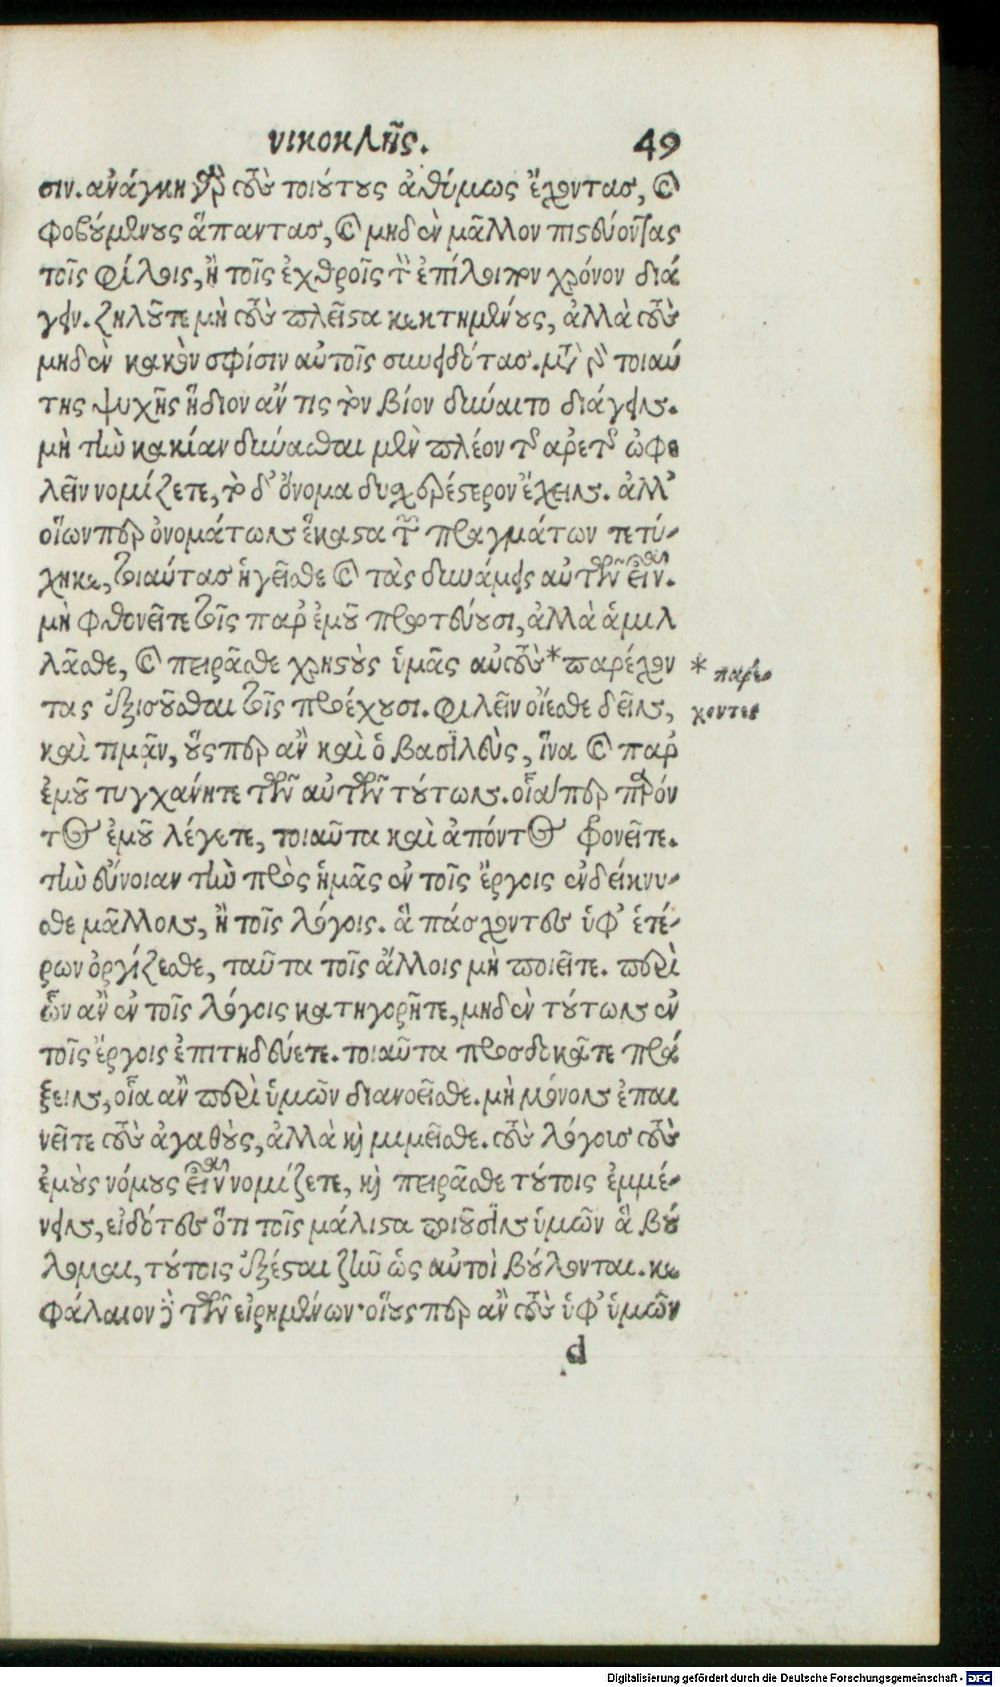 ΝΙΚΟΚΛΗ͂Σ. 49
σιν. ἀνάγκη γὰρ τοὺς τοιούτους ἀθύμως ἔχοντας, καὶ
φοβουμένους ἅπαντας, καὶ μηδὲν μᾶλλον πιστεύοντας
τοῖς φίλοις, ἢ τοῖς ἐχθροῖς τὸν ἐπίλοιπον χρόνον διά
γειν. ζηλοῦτε μὴ τοὺς πλεῖστα κεκτημένους, ἀλλὰ τοὺς
μηδὲν κακὸν σφίσιν αὐτοῖς συνειδότας. μετὰ γὰρ τοιαύ
της ψυχῆς ἥδιον ἄν τις τὸν βίον δύναιτο διάγειν.
μὴ τὴν κακίαν δύνασθαι μὲν πλέον τῆς ἀρετῆς ὠφε
λεῖν νομίζετε, τὸ δ' ὄνομα δυσχερέστερον ἔχειν. ἀλλ'
οἵων περ ὀνομάτων ἕκαστα τῶν πραγμάτων τετύ-
χηκε, τοιαύτας ἡγεῖσθε καὶ τὰς δυνάμεις αὐτῶν εἶναι.
μὴ φθονεῖτε τοῖς παρ' ἐμοῦ πρωτεύουσι, ἀλλὰ ἁμιλ
λᾶσθε, καὶ πειρᾶσθε χρηστοὺς ὑμᾶς αὐτοὺς * παρέχον * παρέ-
τας ἐξισοῦσθαι τοῖς προέχουσι. φιλεῖν οἴεσθε δεῖν, χοντες
καὶ τιμᾶν, οὕσπερ ἂν καὶ ὁ βασιλεὺς, ἵνα καὶ παρ'
ἐμοῦ τυγχάνητε τῶν αὐτῶν τούτων. οἷα περ παρόν
τος ἐμοῦ λέγετε, τοιαῦτα καὶ ἀπόντος φρονεῖτε.
τὴν εὔνοιαν τὴν πρὸς ἡμᾶς ἐν τοῖς ἔργοις ἐνδείκνυ-
σθε μᾶλλον, ἢ τοῖς λόγοις. ἃ πάσχοντες ὑφ' ἑτέ-
ρων ὀργίζεσθε, ταῦτα τοῖς ἄλλοις μὴ ποιεῖτε. περὶ
ὧν ἂν ἐν τοῖς λόγοις κατηγορῆτε, μηδὲν τούτων ἐν
τοῖς ἔργοις ἐπιτηδεύετε. τοιαῦτα προσδοκᾶτε πρά
ξειν, οἷα ἂν περὶ ὑμῶν διανοεῖσθε. μὴ μόνον ἐπαι
νεῖτε τοὺς ἀγαθοὺς, ἀλλὰ καὶ μιμεῖσθε. τοὺς λόγους τοὺς
ἐμοὺς νόμους εἶναι νομίζετε, καὶ πειρᾶσθε τούτοις ἐμμέ-
νειν, εἰδότες ὅτι τοῖς μάλιστα ποιοῦσιν ὑμῶν ἃ βού
λομαι, τούτοις ἐξέσται ζῆν ὡς αὐτοὶ βούλονται. κε
φάλαιον δὲ τῶν εἰρημένων· οἵους περ ἂν τοὺς ὑφ' ὑμῶν
d
Digitalisierung gefördert durch die Deutsche Forschungsgemeinschaft - DFG